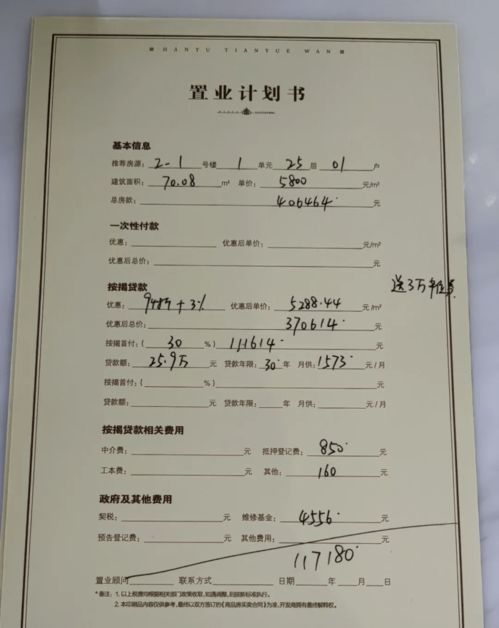 HANYU TIANYUE WAN
置业计划书
基本信息
推荐房源: 2-1 号楼 1 单元 25 层 01 户
建筑面积: 70.08 m² 单价: 5800 元/m²
总房款: 406464 元
一次性付款
优惠: 优惠后单价: 元/m²
优惠后总价: 元
按揭贷款
优惠: + 3% 优惠后单价: 5288.44 元/m²
送3万
优惠后总价: 370614 元
按揭首付:( 30 %) 111614 元
贷款额: 25.9万 元 贷款年限: 30 年 月供: 1573 元/月
按揭首付:( %) 元
贷款额: 元 贷款年限: 年 月供: 元/月
按揭贷款相关费用
中介费: 元 抵押登记费: 850 元
工本费: 元 其他: 160 元
政府及其他费用
契税: 元 维修基金: 4556 元
预告登记费: 元 其他费用: 元
117180
置业顾问 联系方式 日期 年 月 日
*备注: 1. 以上税费均根据相关部门政策收取, 如遇调整, 则按新标准执行。
2. 本印刷品内容仅供参考, 最终以双方签订的《商品房买卖合同》为准, 开发商拥有最终解释权。